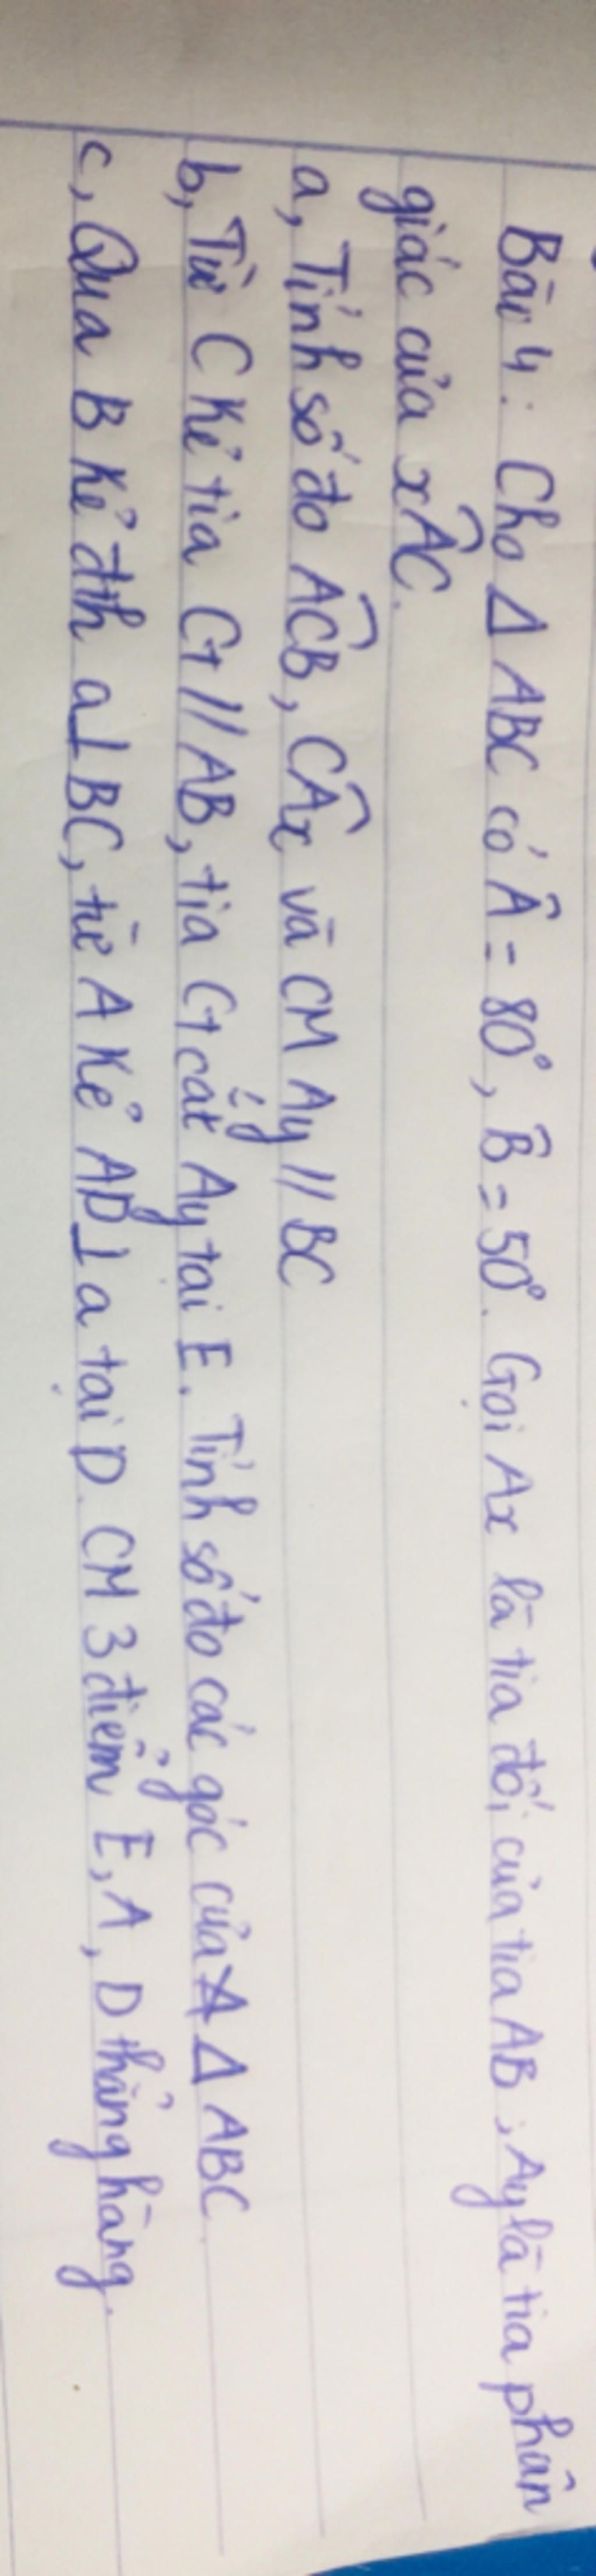 Bài 4: Cho Δ ABC có Â = 80°, B̂ = 50°. Gọi Ax là tia đối của tia AB, Ay là tia phân
giác của xÂC.
a, Tính số đo AĈB, CÂx và CM Ay // BC
b, Từ C kẻ tia Ct // AB, tia Ct cắt Ay tại E. Tính số đo các góc của Δ ABC
c, Qua B kẻ đth a ⊥ BC, từ A kẻ AD ⊥ a tại D. CM 3 điểm E, A, D thẳng hàng.